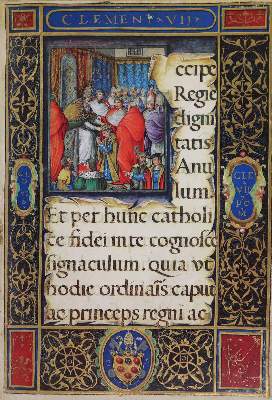 CLEMENS VII
ccipe
Regie
digni
tatis
Anu
lum.
Et per hunc catholi
ce fidei in te cognosce
signaculum. quia vt
hodie ordinaris caput
ac princeps regni ac
CLE
VII
PO
M